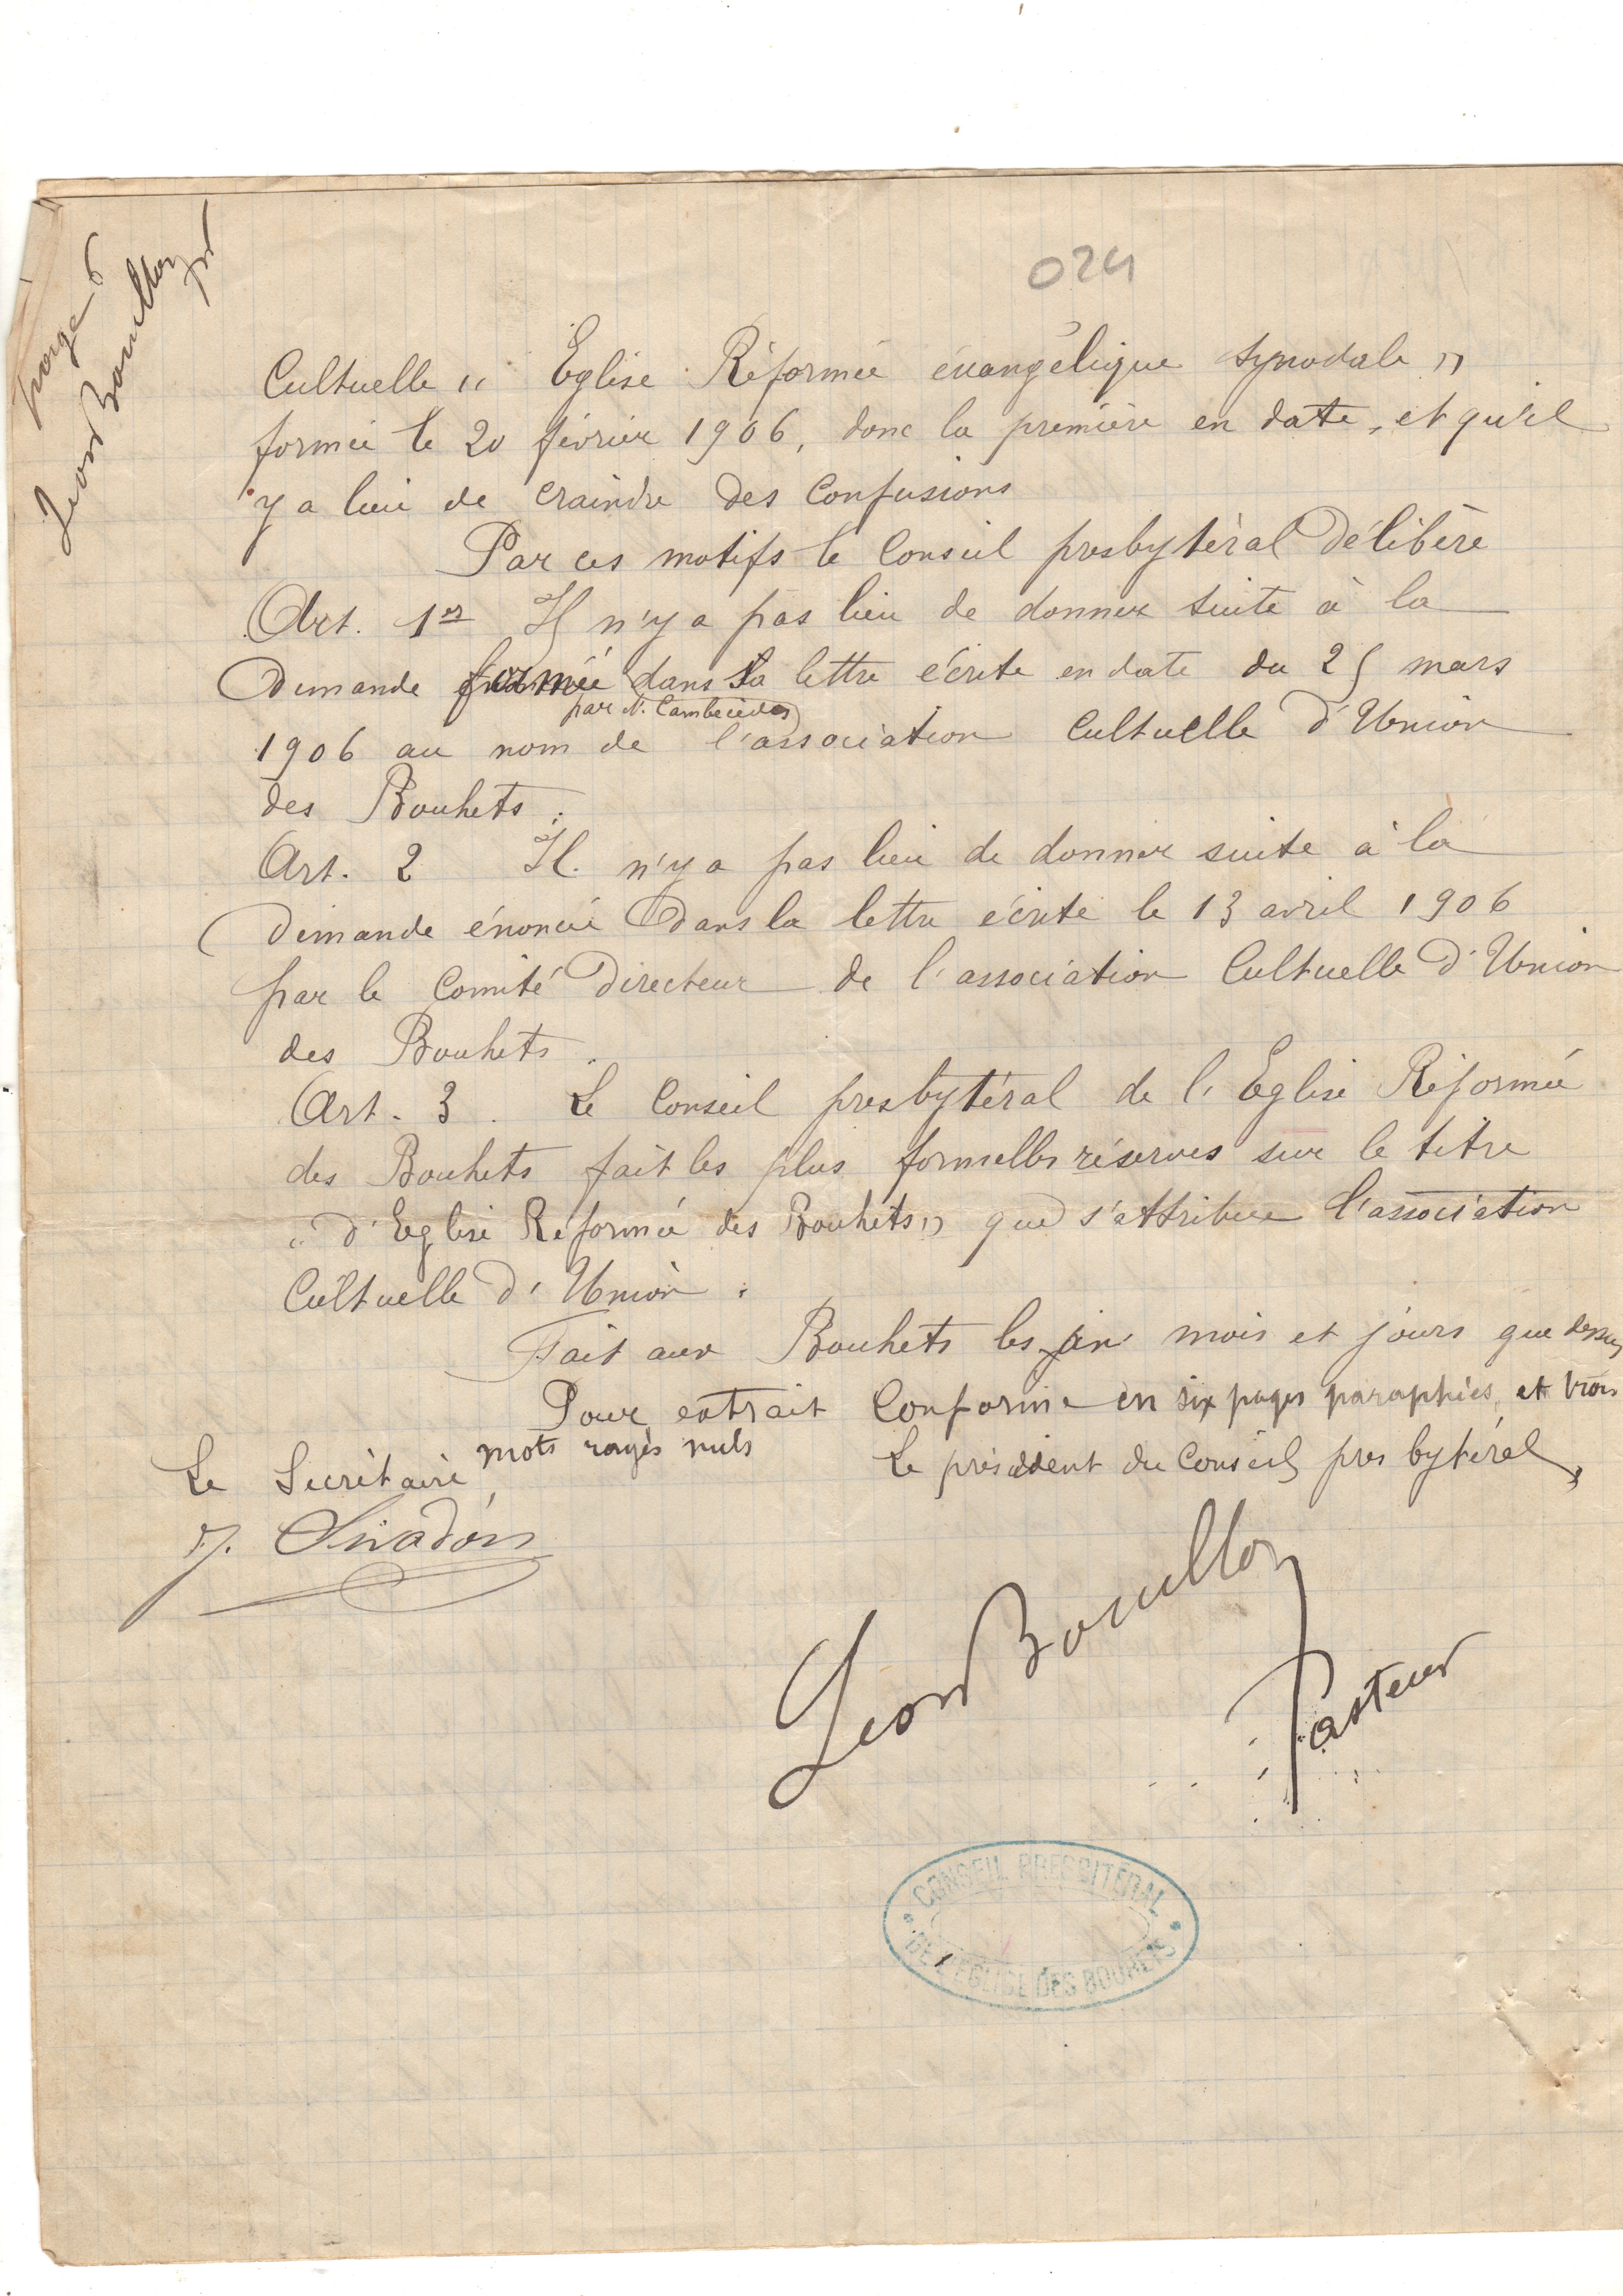 024
Page 6
Leon Bouillon
pr
Cultuelle " Eglise Réformée évangélique synodale "
formée le 20 février 1906, donc la première en date, et qu'il
y a lieu de craindre des confusions
Par ces motifs le Conseil presbytéral Délibère
Art. 1er Il n'y a pas lieu de donner suite à la
Demande formée dans la lettre écrite en date du 25 mars
par N. Cambecèdes
1906 au nom de l'association Cultuelle d'Union
des Bouhets.
Art. 2 Il n'y a pas lieu de donner suite à la
Demande énoncée Dans la lettre écrite le 13 avril 1906
par le Comité Directeur de l'association Cultuelle d'Union
des Bouhets.
Art. 3. Le Conseil presbytéral de l'Eglise Réformée
des Bouhets fait les plus formelles réserves sur le titre
" d'Eglise Réformée des Bouhets " que s'attribue l'association
Cultuelle d'Union.
Fait aux Bouhets les an mois et jours que dessus
Pour extrait Conforme en six pages paraphées et trois
mots rayés nuls
Le Secrétaire, Le président du Conseil presbytéral,
J. Sivadon
Leon Bouillon
Pasteur
CONSEIL PRESBITERAL
DE L'EGLISE DES BOUHETS